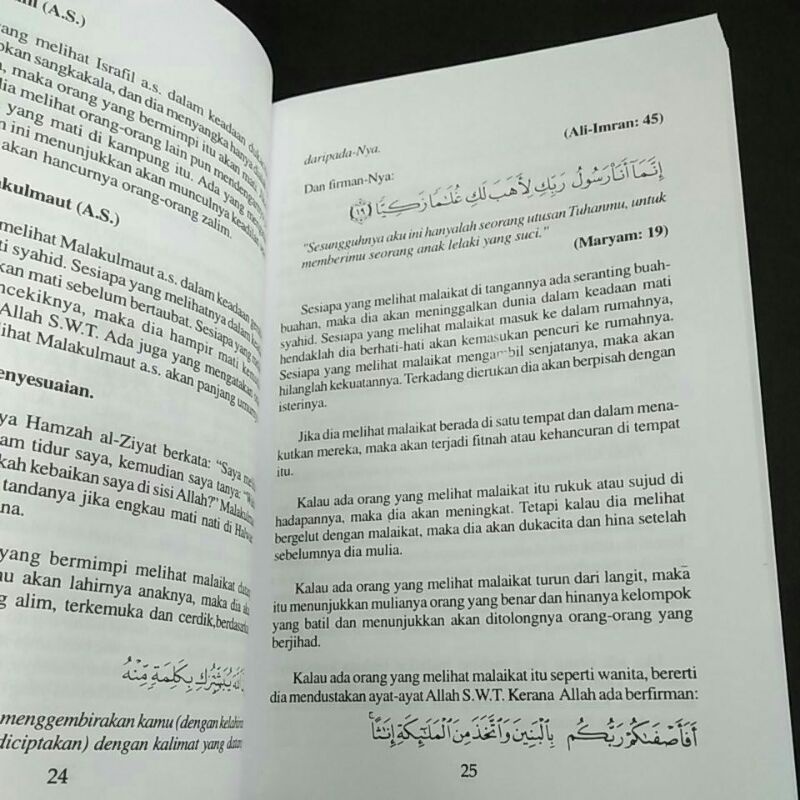 (A.S.)
yang melihat Israfil a.s. dalam keadaan
sangkakala, dan dia menyangka hanya
maka orang yang bermimpi itu akan mati.
dia melihat orang-orang lain pun mendengarnya
yang mati di kampung itu. Ada yang
ini menunjukkan akan munculnya keadilan
akan hancurnya orang-orang zalim.
akulmaut (A.S.)
melihat Malakulmaut a.s. dalam keadaan
ti syahid. Sesiapa yang melihatnya dalam
kan mati sebelum bertaubat. Sesiapa yang
ncekiknya, maka dia hampir mati
Allah S.W.T. Ada juga yang mengatakan
lihat Malakulmaut a.s. akan panjang umurnya
enyesuaian.
ya Hamzah al-Ziyat berkata: "Saya
am tidur saya, kemudian saya tanya:
kah kebaikan saya di sisi Allah?"
tandanya jika engkau mati nati di
na.
yang bermimpi melihat malaikat
u akan lahirnya anaknya, maka dia
g alim, terkemuka dan cerdik,
يُبَشِّرُكِ بِكَلِمَةٍ مِّنْهُ
menggembirakan kamu (dengan
diciptakan) dengan kalimat yang
24
(Ali-Imran: 45)
daripada-Nya.
Dan firman-Nya:
إِنَّمَآ أَنَا۠ رَسُولُ رَبِّكِ لِأَهَبَ لَكِ غُلَٰمًا زَكِيًّا ﴿١٩﴾
"Sesungguhnya aku ini hanyalah seorang utusan Tuhanmu, untuk
memberimu seorang anak lelaki yang suci."
(Maryam: 19)
Sesiapa yang melihat malaikat di tangannya ada seranting buah-
buahan, maka dia akan meninggalkan dunia dalam keadaan mati
syahid. Sesiapa yang melihat malaikat masuk ke dalam rumahnya,
hendaklah dia berhati-hati akan kemasukan pencuri ke rumahnya.
Sesiapa yang melihat malaikat mengambil senjatanya, maka akan
hilanglah kekuatannya. Terkadang dierukan dia akan berpisah dengan
isterinya.
Jika dia melihat malaikat berada di satu tempat dan dalam mena-
kutkan mereka, maka akan terjadi fitnah atau kehancuran di tempat
itu.
Kalau ada orang yang melihat malaikat itu rukuk atau sujud di
hadapannya, maka dia akan meningkat. Tetapi kalau dia melihat
bergelut dengan malaikat, maka dia akan dukacita dan hina setelah
sebelumnya dia mulia.
Kalau ada orang yang melihat malaikat turun dari langit, maka
itu menunjukkan mulianya orang yang benar dan hinanya kelompok
yang batil dan menunjukkan akan ditolongnya orang-orang yang
berjihad.
Kalau ada orang yang melihat malaikat itu seperti wanita, bererti
dia mendustakan ayat-ayat Allah S.W.T. Kerana Allah ada berfirman:
أَفَأَصْفَىٰكُمْ رَبُّكُم بِٱلْبَنِينَ وَٱتَّخَذَ مِنَ ٱلْمَلَٰٓئِكَةِ إِنَٰثًا ۚ
25